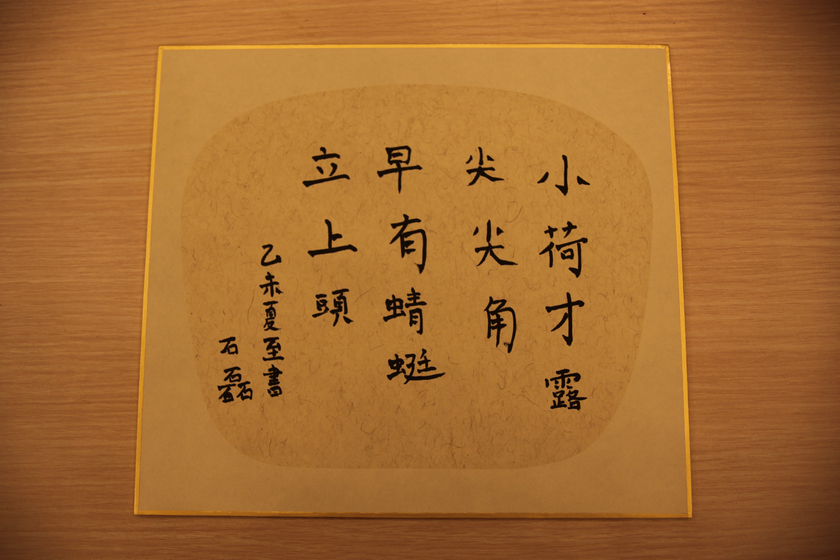 小荷才露
尖尖角
早有蜻蜓
立上頭
乙未夏至書
石磊